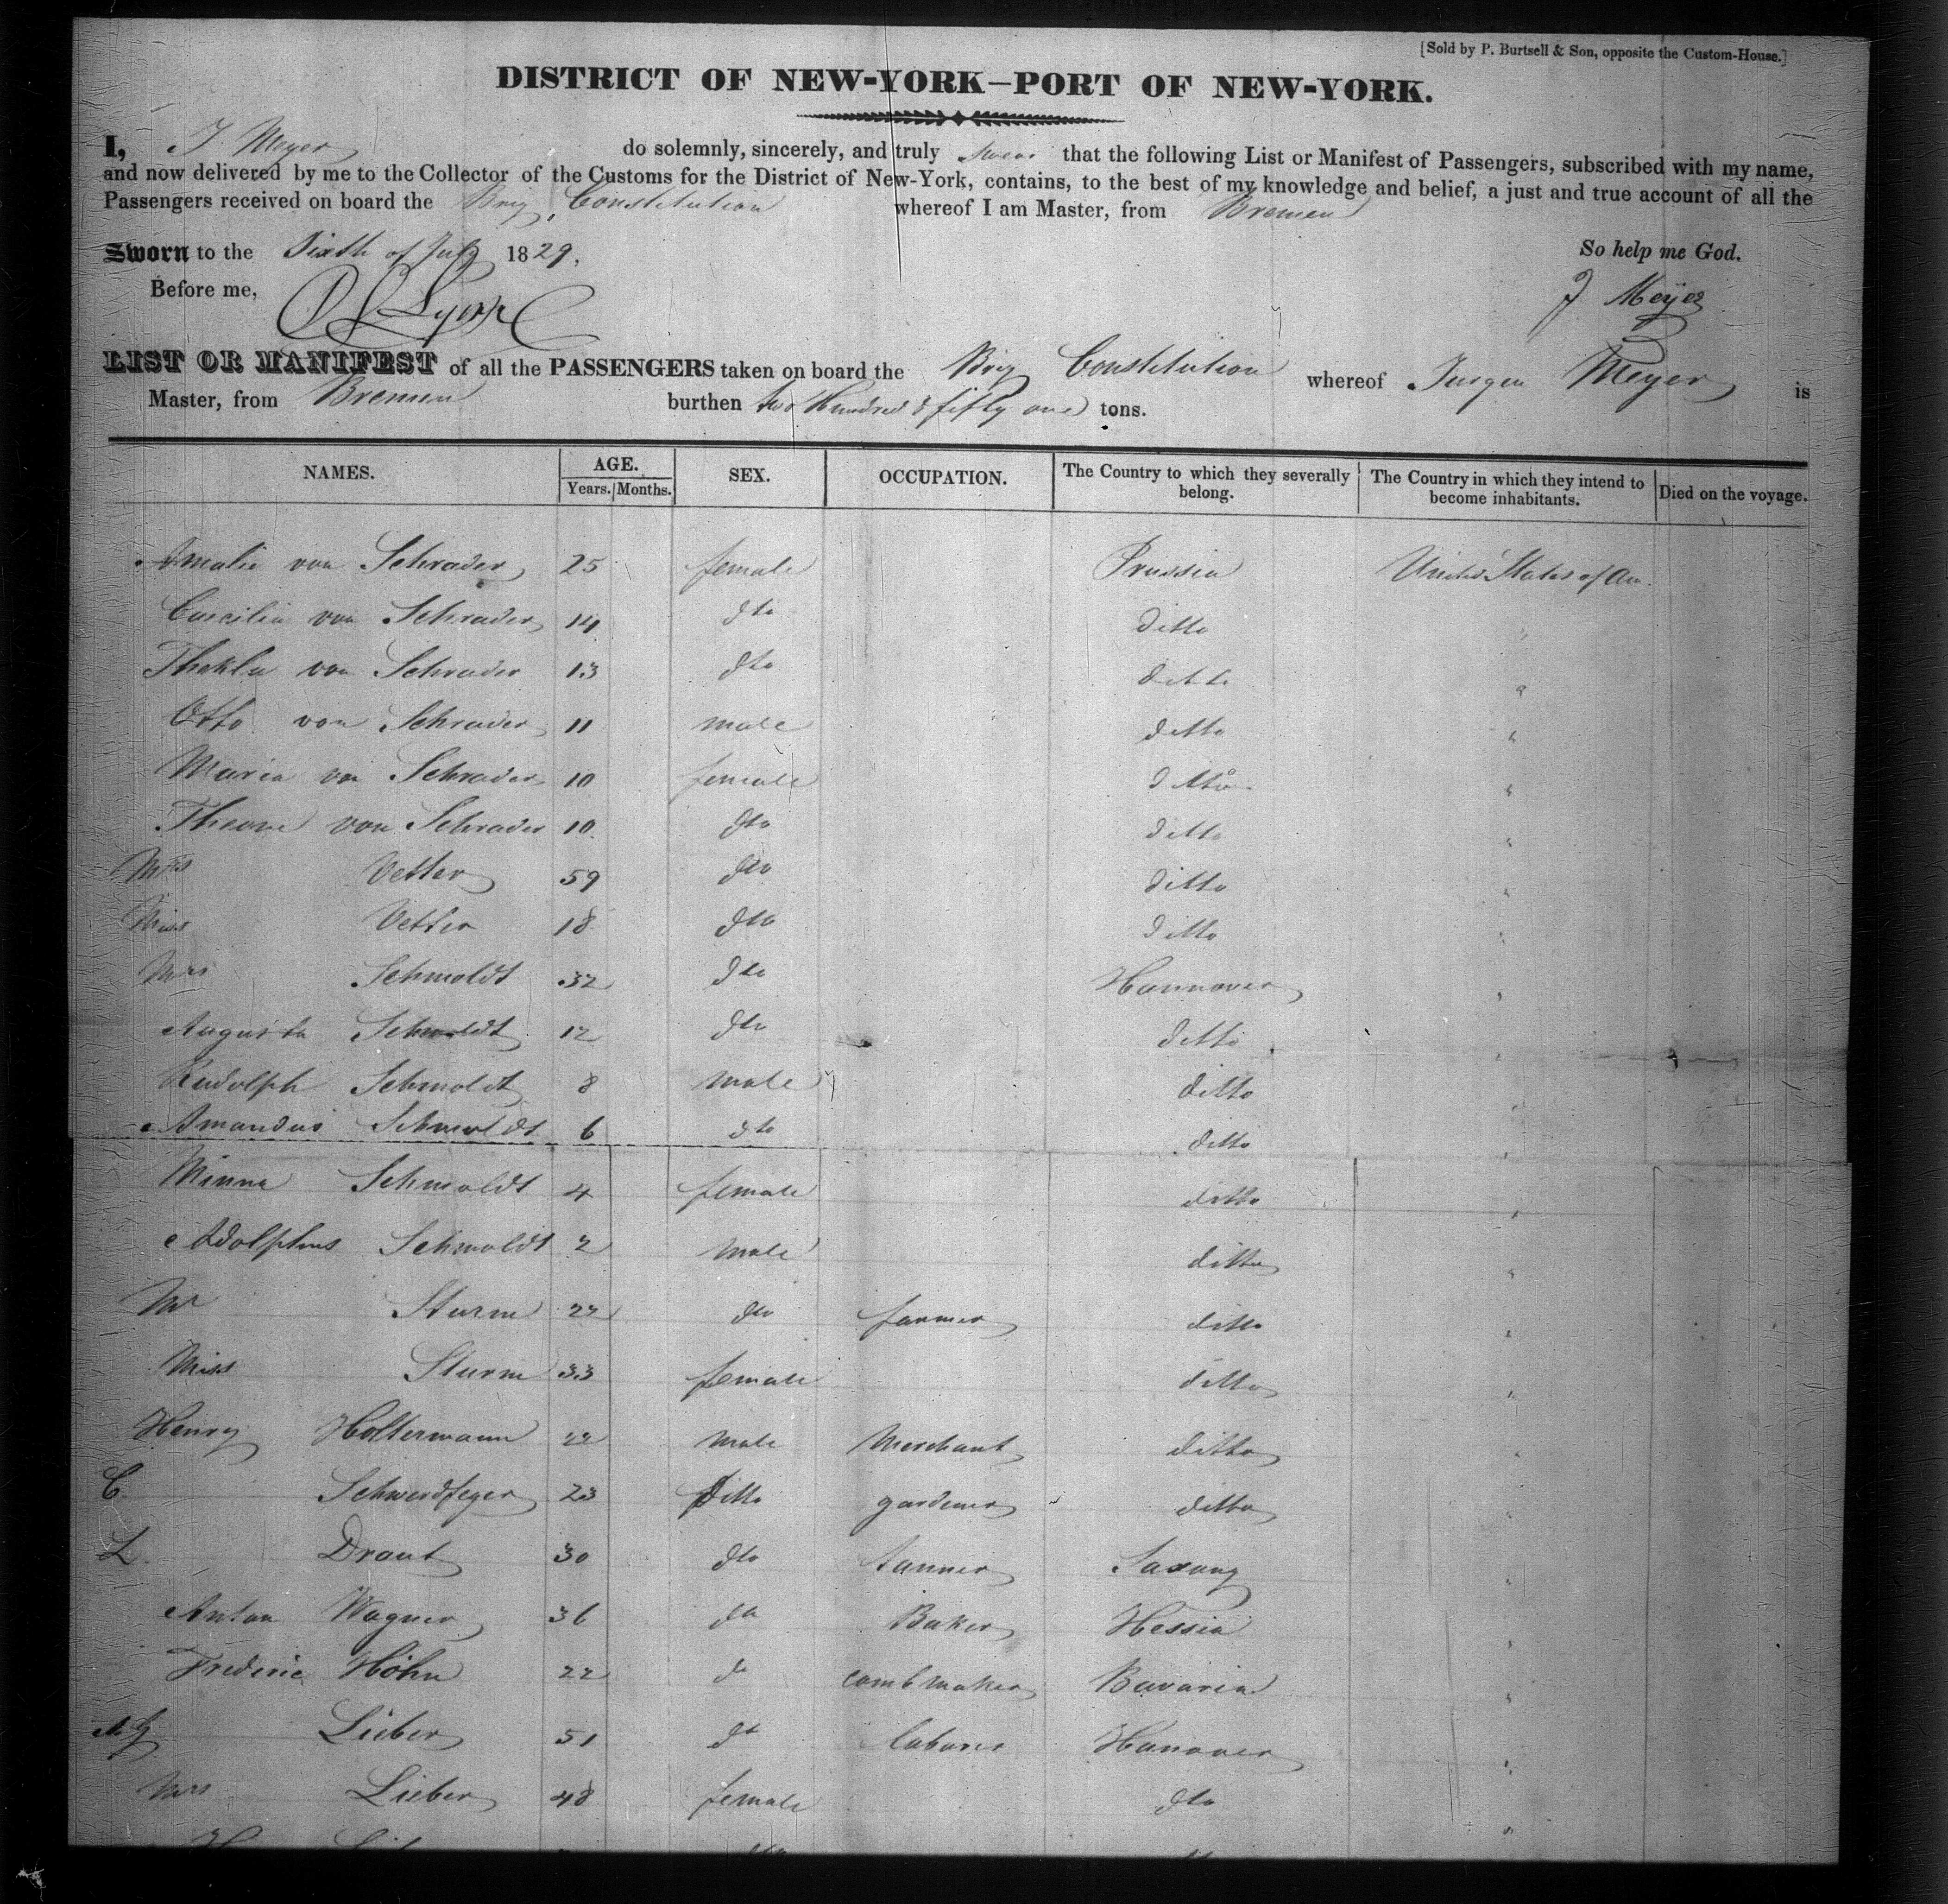 [Sold by P. Burtsell & Son, opposite the Custom-House.]
DISTRICT OF NEW-YORK—PORT OF NEW-YORK.
I, J Meyer do solemnly, sincerely, and truly swear that the following List or Manifest of Passengers, subscribed with my name,
and now delivered by me to the Collector of the Customs for the District of New-York, contains, to the best of my knowledge and belief, a just and true account of all the
Passengers received on board the Brig Constitution whereof I am Master, from Bremen
Sworn to the Sixth of July 1829. So help me God.
Before me, J Meyer
LIST OR MANIFEST of all the PASSENGERS taken on board the Brig Constitution whereof Jurgen Meyer is
Master, from Bremen burthen two Hundred & fifty one tons.
NAMES. AGE. SEX. OCCUPATION. The Country to which they severally belong. The Country in which they intend to become inhabitants. Died on the voyage.
Years. Months.
Amalie von Schrader 25 female Prussia United States of Am.
Caecilia von Schrader 14 dto ditto "
Thekla von Schrader 13 dto ditto "
Otto von Schrader 11 male ditto "
Maria von Schrader 10 female ditto "
von Schrader 10 dto ditto "
Mrs Vetter 59 dto ditto "
Miss Vetter 18 dto ditto "
Mrs Schmoldt 32 dto Hannover "
Augusta Schmoldt 12 dto ditto "
Rudolph Schmoldt 8 male ditto "
Amandus Schmoldt 6 dto ditto "
Minna Schmoldt 4 female ditto "
Adolphus Schmoldt 2 male ditto "
Mr Sturm 22 dto farmer ditto "
Miss Sturm 33 female ditto "
Henry Holtermann 22 male Merchant ditto "
C Schwerdfeger 23 Ditto gardener ditto "
L Draut 30 dto tanner Saxony "
Anton Wagner 36 do Baker Hessia "
Frederic Höhn 22 do combmaker Bavaria "
Lieber 51 dt laborer Hanover "
Mrs Lieber 48 female dto "